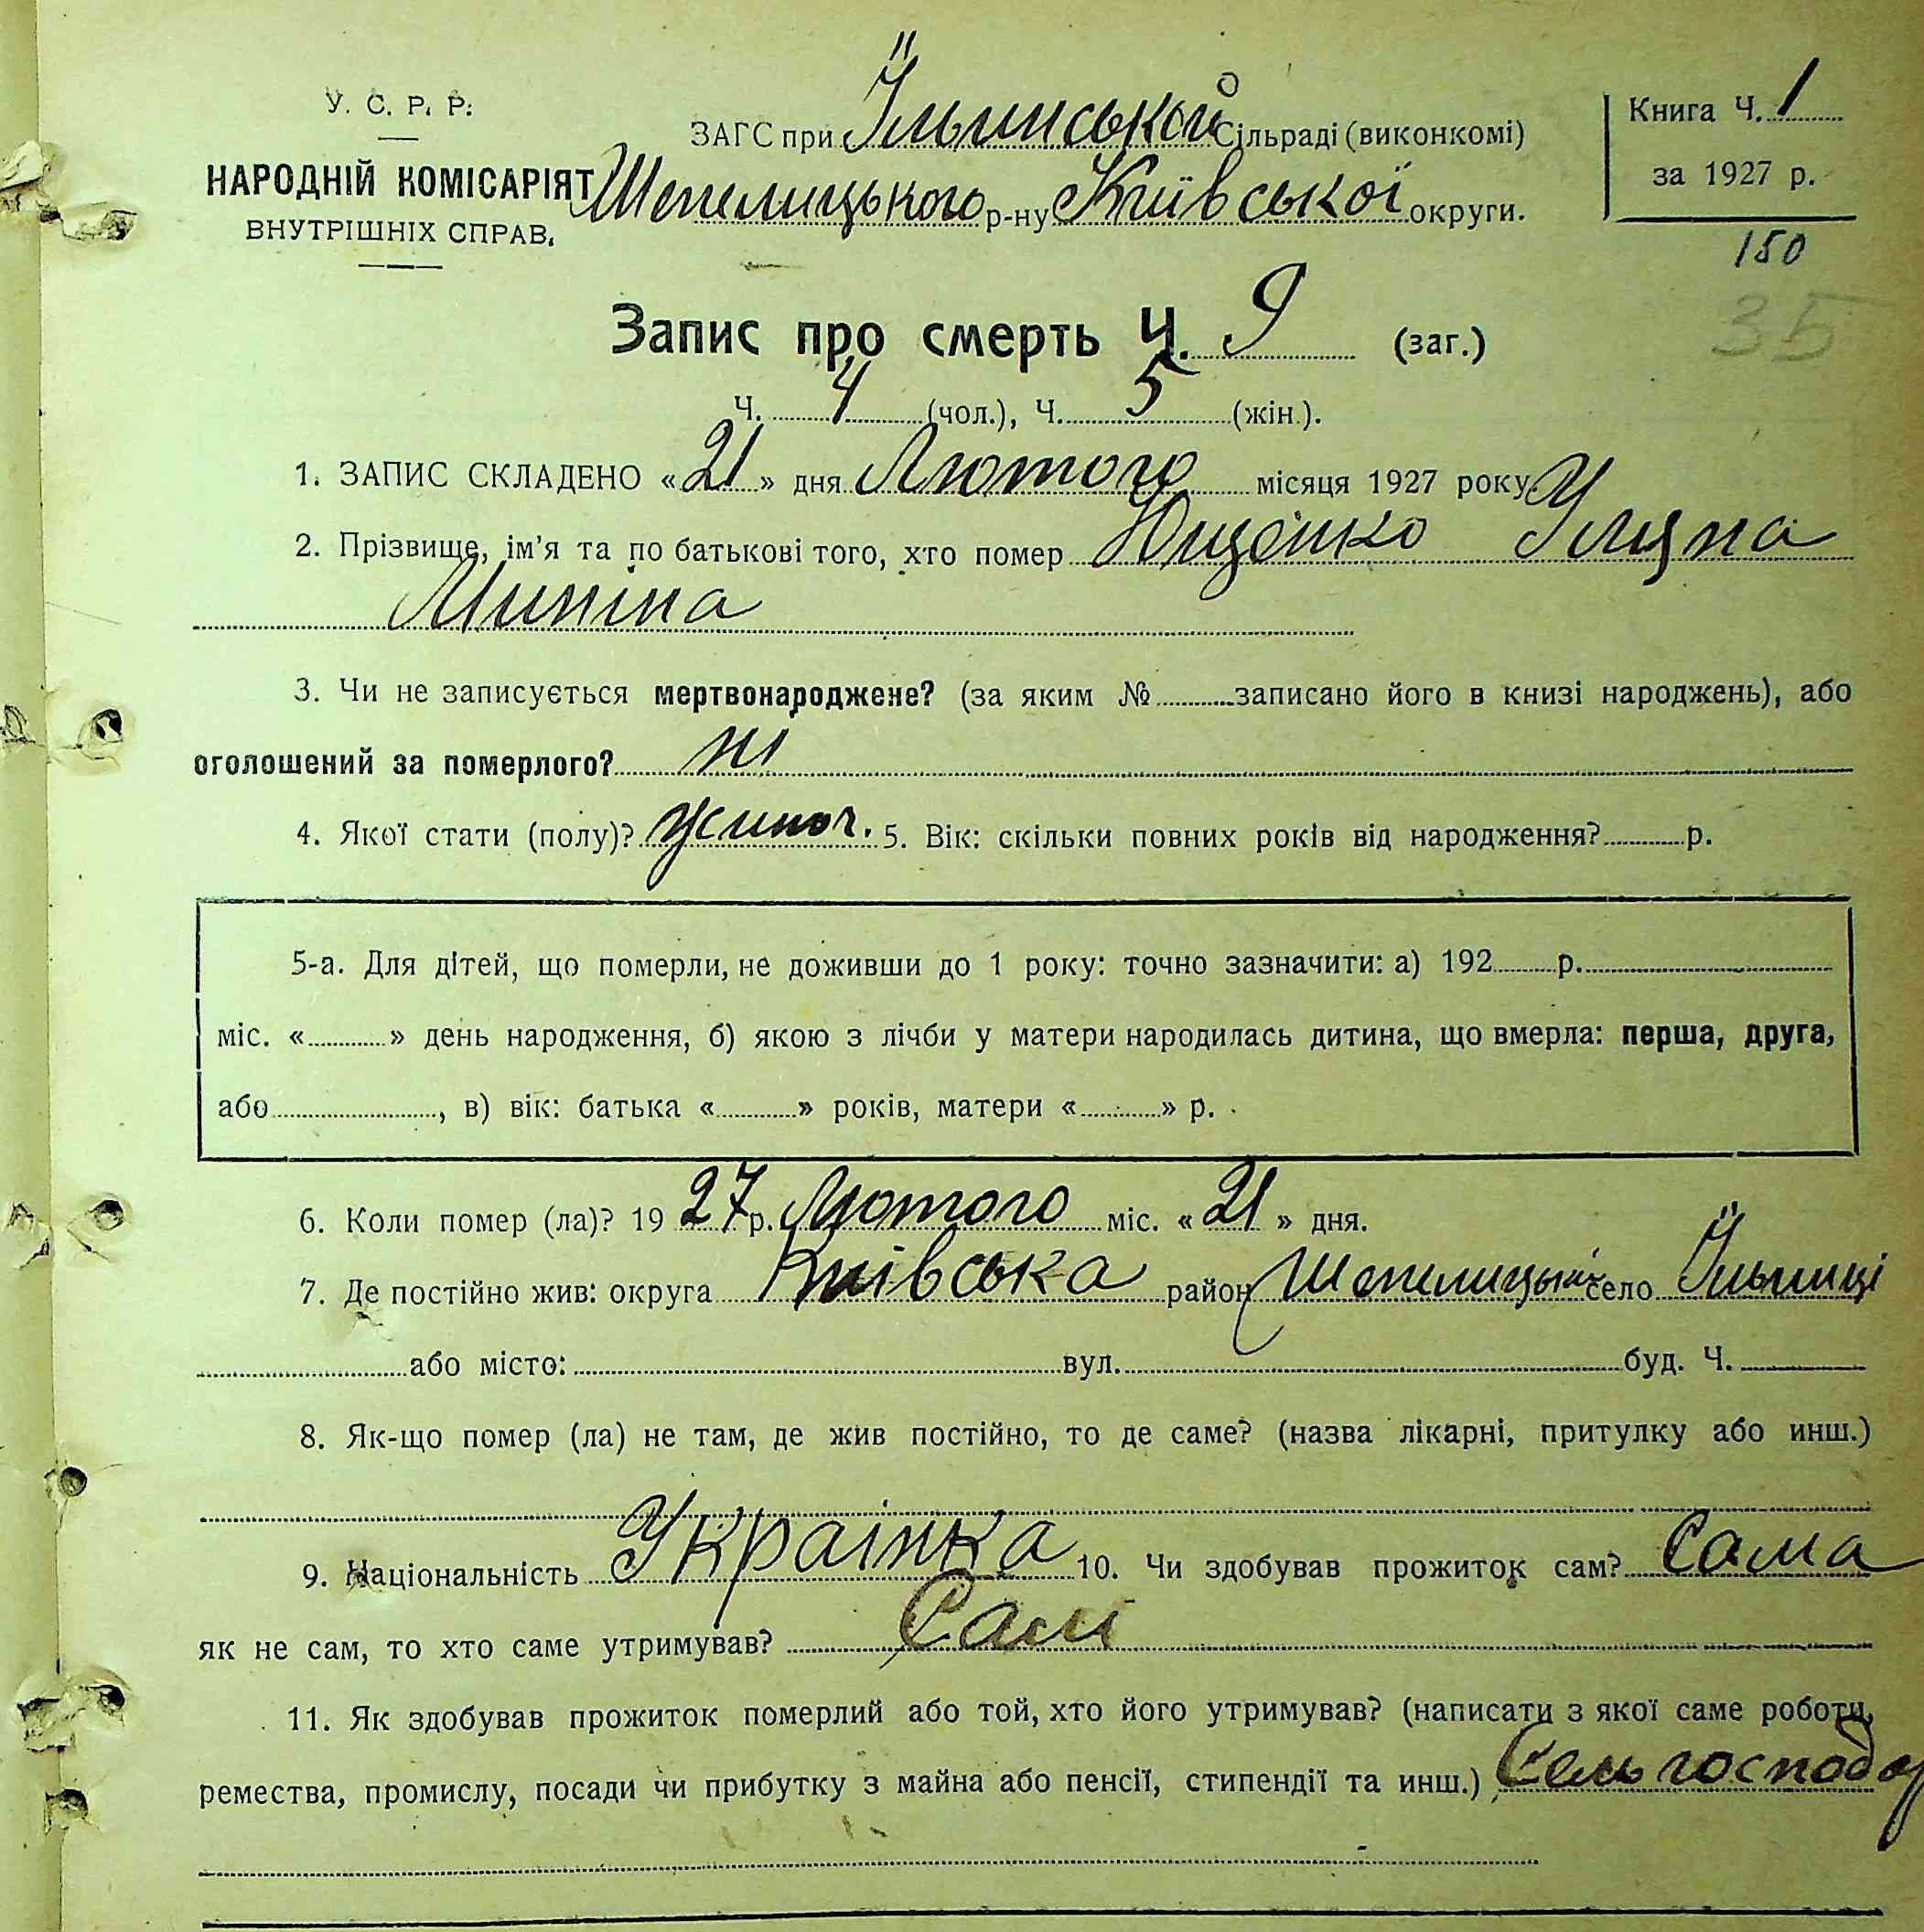 У. С. Р. Р.
НАРОДНІЙ КОМІСАРІЯТ
ВНУТРІШНІХ СПРАВ.
ЗАГС при Їльинській Сільраді (виконкомі)
Шепелицького р-ну Київської округи.
Книга Ч. 1
за 1927 р.
150
35
Запис про смерть Ч. 9 (заг.)
Ч. 4 (чол.), Ч. 5 (жін.).
1. ЗАПИС СКЛАДЕНО «21» дня Лютого місяця 1927 року.
2. Прізвище, ім'я та по батькові того, хто помер Ющенко Уляна
Миніна
3. Чи не записується мертвонароджене? (за яким № записано його в книзі народжень), або
оголошений за померлого? ні
4. Якої стати (полу)? жиноч. 5. Вік: скільки повних років від народження? р.
5-а. Для дітей, що померли, не доживши до 1 року: точно зазначити: а) 192 р.
міс. « » день народження, б) якою з лічби у матери народилась дитина, що вмерла: перша, друга,
або , в) вік: батька « » років, матери « » р.
6. Коли помер (ла)? 19 27 р. Лютого міс. «21» дня.
7. Де постійно жив: округа Київська район Шепелицький село Їльинці
або місто: вул. буд. Ч.
8. Як-що помер (ла) не там, де жив постійно, то де саме? (назва лікарні, притулку або инш.)
9. Національність Украінка 10. Чи здобував прожиток сам? Сама
як не сам, то хто саме утримував? Самі
11. Як здобував прожиток померлий або той, хто його утримував? (написати з якої саме роботи,
ремества, промислу, посади чи прибутку з майна або пенсії, стипендії та инш.) Сель господар